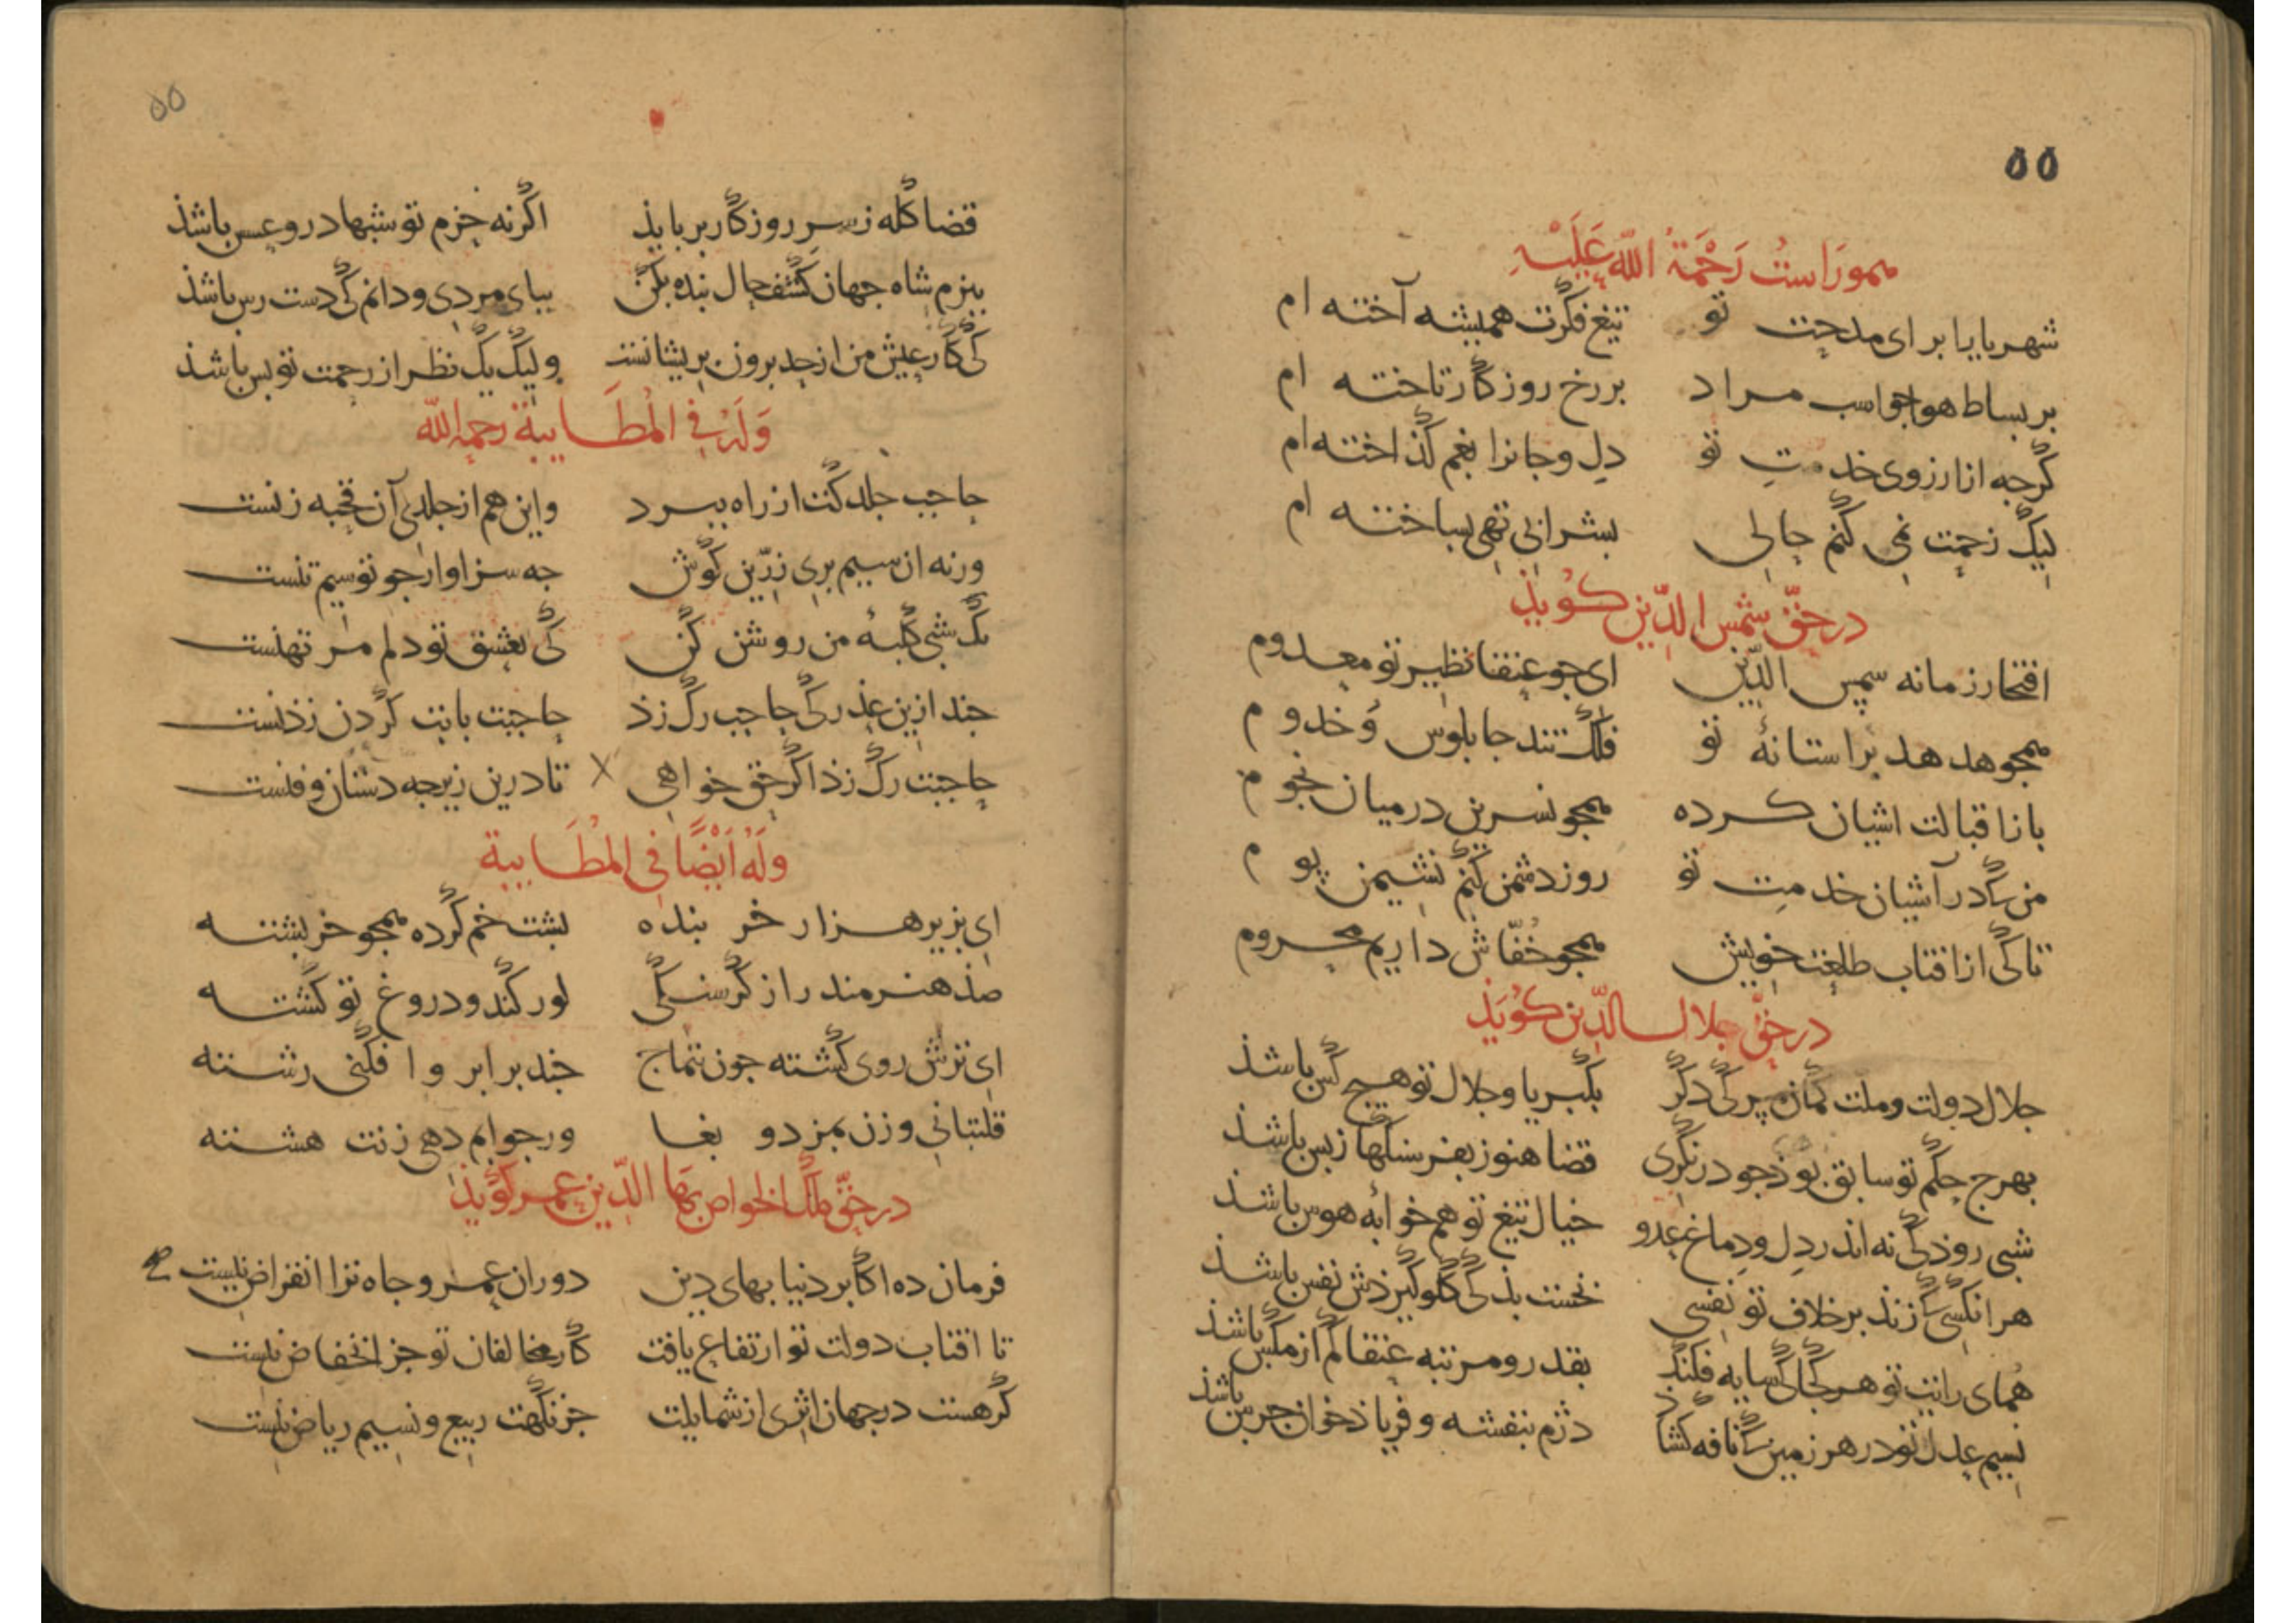 ۵۵
هموراست رَحْمَةُ اللّه عَلَيْهِ
شهریارا برای مدحت تو تیغ فکرت همیشه آخته ام
بر بساط هوا جو اسب مراد بر رخ روزکار تاخته ام
کرجه از ارزوی خدمتِ تو دل و جانرا بغم کذاخته ام
لیک زحمت نمی کنم حالی بشرابی تهی بساخته ام
در حقّ شمس الدّین کوید
افتخار زمانه سپس الدّین ای جو عنقا نظیر تو معدوم
همجو هدهد بر استانهٔ تو فلک تند جابلوس وُ خدوم
باز اقبالت اشیان کرده همجو نسرین در میان نجوم
من که در آشیان خدمتِ تو روز دشمن کنم نشیمن بوم
تا کی از افتاب طلعت خویش همجو خفّاش داریم محروم
در حقّ جلال الدّین کویذ
جلال دولت و ملت کمان مبر کی دکر بکبریا و جلال تو هیج کس باشذ
بهرج حکم تو سابق بوذ جو درنکری قضا هنوز بفرسنکها ز بس باشذ
شبی روذ کی نه اندر دل و دماغ عدو خیال تیغ تو هم خوابه هوس باشذ
هر انکسی که زند بر خلاف تو نفسی نخست بذ کی کلو کیرذش نفس باشذ
همای رایت تو هر کجا کی سایه فکند بقدر و مرتبه عنقا کم از مکس باشذ
نسیم عدل تو در هر زمین که نافه کشاذ دژم بنفشه و فریاذ خوان جرس باشذ
۵۵
قضا کله ز سر روزکار برباید اکر نه حزم تو شبها درو عسس باشذ
ببزم شاه جهان کشف حال بنده بکن ببای مردی و دانم کی دست رس باشذ
کی کار عیش من از حد برون بریشانست ولیک یک نظر از رحمت تو بس باشذ
وَلَهُ فِی المُطَایبَة رحمه اللّه
حاجب جلد کت از راه ببرد و این هم از جلدی آن قحبه زنست
ورنه ان سیم بری زرّین کوش جه سزاوار جو تو سیم تنست
یک شبی کلبهٔ من روشن کن کی بعشق تو دلم مرتهنست
جند ازین عذر کی حاجب رک زذ حاجبت بابت کردن زذنست
حاجبت رک زذ اکر حق خواهی تا درین زیر جه دستان و فنست
وَلَهُ اَیْضًا فی المُطَایبة
ای بزیر هزار خر بنده بشت خم کرده همجو خر بشته
صذ هنرمند را ز کرسنکی لور کند و دروغ تو کشته
ای ترش روی کشته جون تتماج جند برابر وا فکنی رشته
قلتبانی و زن بمزد و بغا ور جوابم دهی زنت هشته
در حقّ ملک الخواص بهَا الدّین عمر کویذ
فرمان ده اکابر دنیا بهای دین دوران عمر و جاه ترا انقراض نیست
تا افتاب دولت تو ارتفاع یافت کار مخالفان تو جز انخفاض نیست
کر هست در جهان اثری از شمایلت جز نکهت ربیع و نسیم ریاض نیست